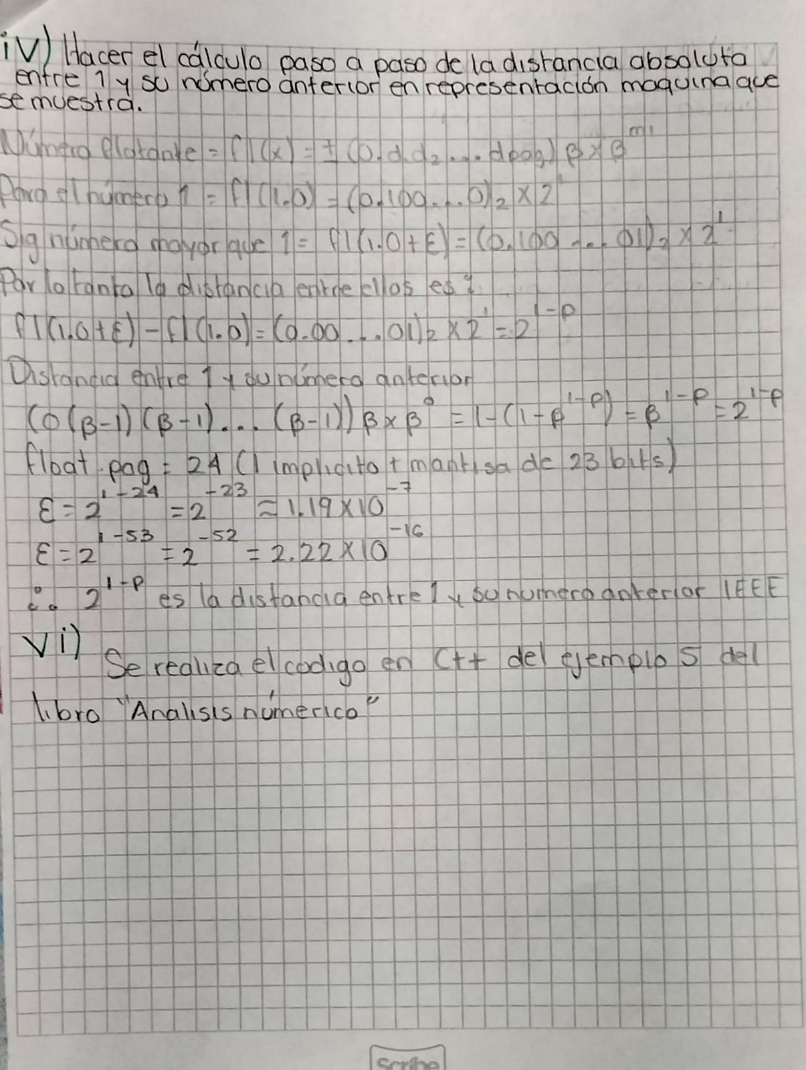 iv) Hacer el cálculo paso a paso de la distancia absoluta
entre 1 y su número anterior en representación maquina que
se muestra.
Número flotante = fl(x) = ± (0.d₁d₂...dpag) β × β^m
Para el número 1 = fl(1.0) = (0.100...0)₂ × 2¹
Sig número mayor que 1 = fl(1.0+ε) = (0.100...01)₂ × 2¹
Por lo tanto la distancia entre ellos es:
fl(1.0+ε) – fl(1.0) = (0.00...01)₂ × 2¹ = 2^1-p
Distancia entre 1 y su número anterior
(0(β-1)(β-1)...(β-1))β × β⁰ = 1-(1-β^1-p) = β^1-p = 2^1-p
float pag = 24 (1 implicito + mantisa de 23 bits)
ε = 2^1-24 = 2^-23 ≈ 1.19×10^-7
ε = 2^1-53 = 2^-52 = 2.22×10^-16
∴ 2^1-p es la distancia entre 1 y su numero anterior IEEE
vi)
Se realiza el codigo en C++ del ejemplo 5 del
libro "Analisis númerico"
Scribe